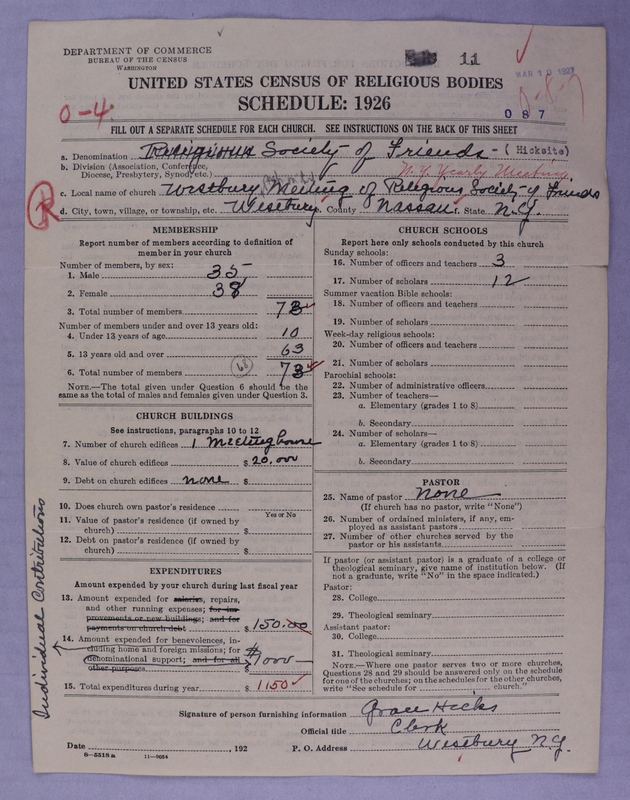 DEPARTMENT OF COMMERCE
BUREAU OF THE CENSUS
WASHINGTON
11
MAR 10 1927
UNITED STATES CENSUS OF RELIGIOUS BODIES
SCHEDULE: 1926
0-4
8-8-7
087
FILL OUT A SEPARATE SCHEDULE FOR EACH CHURCH. SEE INSTRUCTIONS ON THE BACK OF THIS SHEET
a. Denomination Religious Society of Friends - (Hicksite)
b. Division (Association, Conference, Diocese, Presbytery, Synod, etc.) N.Y. Yearly Meeting
c. Local name of church Westbury Meeting of Religious Society of Friends
d. City, town, village, or township, etc. Westbury County Nassau State N.Y.
R
MEMBERSHIP
Report number of members according to definition of
member in your church
Number of members, by sex:
1. Male 35
2. Female 38
3. Total number of members 73
Number of members under and over 13 years old:
4. Under 13 years of age 10
5. 13 years old and over 63
6. Total number of members (68) 73
NOTE.—The total given under Question 6 should be the
same as the total of males and females given under Question 3.
CHURCH BUILDINGS
See instructions, paragraphs 10 to 12
7. Number of church edifices 1 Meetinghouse
8. Value of church edifices $ 20,000
9. Debt on church edifices none $
10. Does church own pastor's residence
Yes or No
11. Value of pastor's residence (if owned by
church) $
12. Debt on pastor's residence (if owned by
church) $
EXPENDITURES
Amount expended by your church during last fiscal year
13. Amount expended for salaries, repairs,
and other running expenses; for im-
provements or new buildings; and for
payments on church debt $ 150.00
14. Amount expended for benevolences, in-
cluding home and foreign missions; for
denominational support; and for all
other purposes $1000
15. Total expenditures during year $ 1150
Individual Contributions
CHURCH SCHOOLS
Report here only schools conducted by this church
Sunday schools:
16. Number of officers and teachers 3
17. Number of scholars 12
Summer vacation Bible schools:
18. Number of officers and teachers
19. Number of scholars
Week-day religious schools:
20. Number of officers and teachers
21. Number of scholars
Parochial schools:
22. Number of administrative officers
23. Number of teachers—
a. Elementary (grades 1 to 8)
b. Secondary
24. Number of scholars—
a. Elementary (grades 1 to 8)
b. Secondary
PASTOR
25. Name of pastor None
(If church has no pastor, write "None")
26. Number of ordained ministers, if any, em-
ployed as assistant pastors
27. Number of other churches served by the
pastor or his assistants
If pastor (or assistant pastor) is a graduate of a college or
theological seminary, give name of institution below. (If
not a graduate, write "No" in the space indicated.)
Pastor:
28. College
29. Theological seminary
Assistant pastor:
30. College
31. Theological seminary
NOTE.—Where one pastor serves two or more churches,
Questions 28 and 29 should be answered only on the schedule
for one of the churches; on the schedules for the other churches,
write "See schedule for church."
Signature of person furnishing information Grace Hicks
Official title Clerk
Date , 192 P. O. Address Westbury N.Y.
8-5518a 11-9654